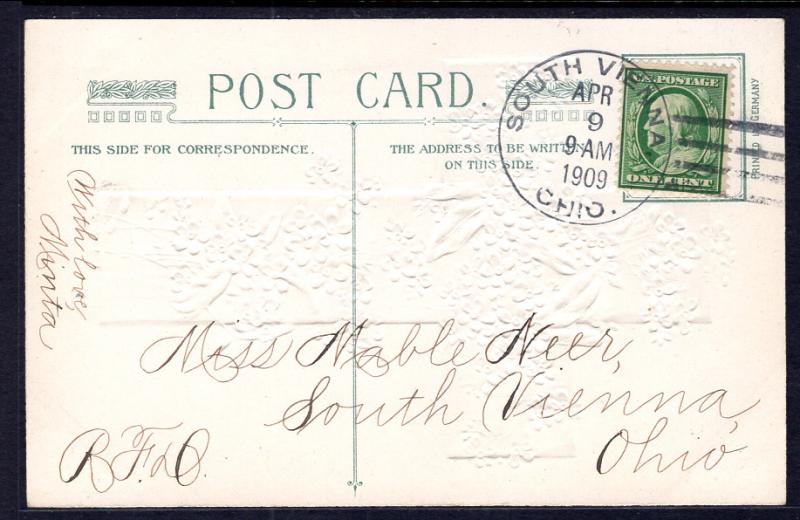 POST CARD.
THIS SIDE FOR CORRESPONDENCE.
THE ADDRESS TO BE WRITTEN
ON THIS SIDE.
SOUTH VIENNA
APR
9
9 AM
1909
OHIO.
U.S. POSTAGE
ONE CENT
PRINTED IN GERMANY
With love
Minta
Miss Mable Neer,
South Vienna,
Ohio
R.F.D.